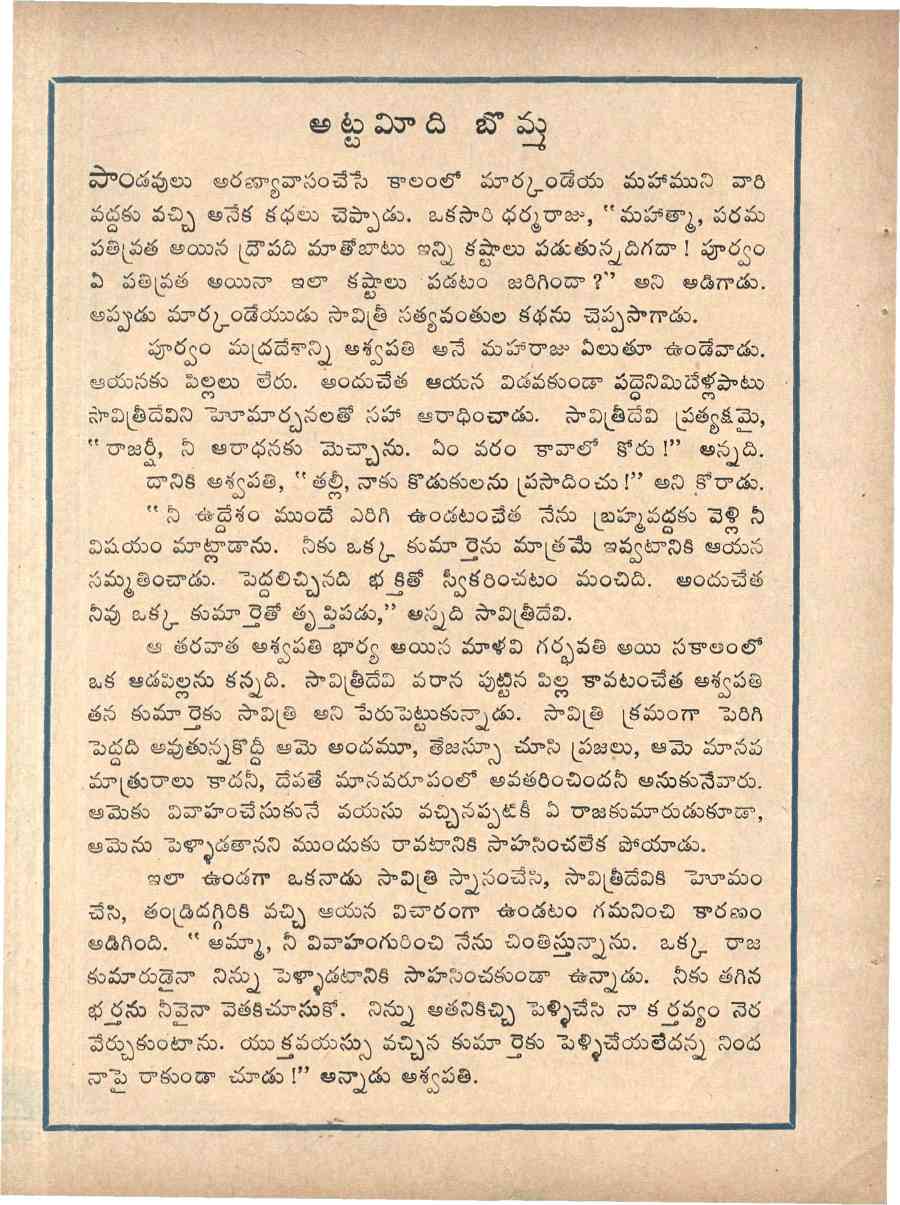 అట్టమీది బొమ్మ
పాండవులు అరణ్యావాసంచేసే కాలంలో మార్కండేయ మహాముని వారి
వద్దకు వచ్చి అనేక కథలు చెప్పాడు. ఒకసారి ధర్మరాజు, “మహాత్మా, పరమ
పతివ్రత అయిన ద్రౌపది మాతోబాటు ఇన్ని కష్టాలు పడుతున్నదిగదా! పూర్వం
ఏ పతివ్రత అయినా ఇలా కష్టాలు పడటం జరిగిందా?” అని అడిగాడు.
అప్పుడు మార్కండేయుడు సావిత్రీ సత్యవంతుల కథను చెప్పసాగాడు.
పూర్వం మద్రదేశాన్ని అశ్వపతి అనే మహారాజు ఏలుతూ ఉండేవాడు.
ఆయనకు పిల్లలు లేరు. అందుచేత ఆయన విడవకుండా పద్ధెనిమిదేళ్లపాటు
సావిత్రీదేవిని హెూమార్చనలతో సహా ఆరాధించాడు. సావిత్రీదేవి ప్రత్యక్షమై,
“రాజర్షీ, నీ ఆరాధనకు మెచ్చాను. ఏం వరం కావాలో కోరు!” అన్నది.
దానికి అశ్వపతి, “తల్లీ, నాకు కొడుకులను ప్రసాదించు!” అని కోరాడు.
“నీ ఉద్దేశం ముందే ఎరిగి ఉండటంచేత నేను బ్రహ్మవద్దకు వెళ్లి నీ
విషయం మాట్లాడాను. నీకు ఒక్క కుమార్తెను మాత్రమే ఇవ్వటానికి ఆయన
సమ్మతించాడు. పెద్దలిచ్చినది భక్తితో స్వీకరించటం మంచిది. అందుచేత
నీవు ఒక్క కుమార్తెతో తృప్తిపడు,” అన్నది సావిత్రీదేవి.
ఆ తరవాత అశ్వపతి భార్య అయిన మాళవి గర్భవతి అయి సకాలంలో
ఒక ఆడపిల్లను కన్నది. సావిత్రీదేవి వరాన పుట్టిన పిల్ల కావటంచేత అశ్వపతి
తన కుమార్తెకు సావిత్రి అని పేరుపెట్టుకున్నాడు. సావిత్రి క్రమంగా పెరిగి
పెద్దది అవుతున్నకొద్దీ ఆమె అందమూ, తేజస్సూ చూసి ప్రజలు, ఆమె మానవ
మాత్రురాలు కాదనీ, దేవతే మానవరూపంలో అవతరించిందనీ అనుకునేవారు.
ఆమెకు వివాహంచేసుకునే వయసు వచ్చినప్పటికీ ఏ రాజకుమారుడుకూడా,
ఆమెను పెళ్ళాడతానని ముందుకు రావటానికి సాహసించలేక పోయాడు.
ఇలా ఉండగా ఒకనాడు సావిత్రి స్నానంచేసి, సావిత్రీదేవికి హెూమం
చేసి, తండ్రిదగ్గిరికి వచ్చి ఆయన విచారంగా ఉండటం గమనించి కారణం
అడిగింది. “అమ్మా, నీ వివాహంగురించి నేను చింతిస్తున్నాను. ఒక్క రాజ
కుమారుడైనా నిన్ను పెళ్ళాడటానికి సాహసించకుండా ఉన్నాడు. నీకు తగిన
భర్తను నీవైనా వెతకిచూసుకో. నిన్ను అతనికిచ్చి పెళ్ళిచేసి నా కర్తవ్యం నెర
వేర్చుకుంటాను. యుక్తవయస్సు వచ్చిన కుమార్తెకు పెళ్ళిచేయలేదన్న నింద
నాపై రాకుండా చూడు!” అన్నాడు అశ్వపతి.